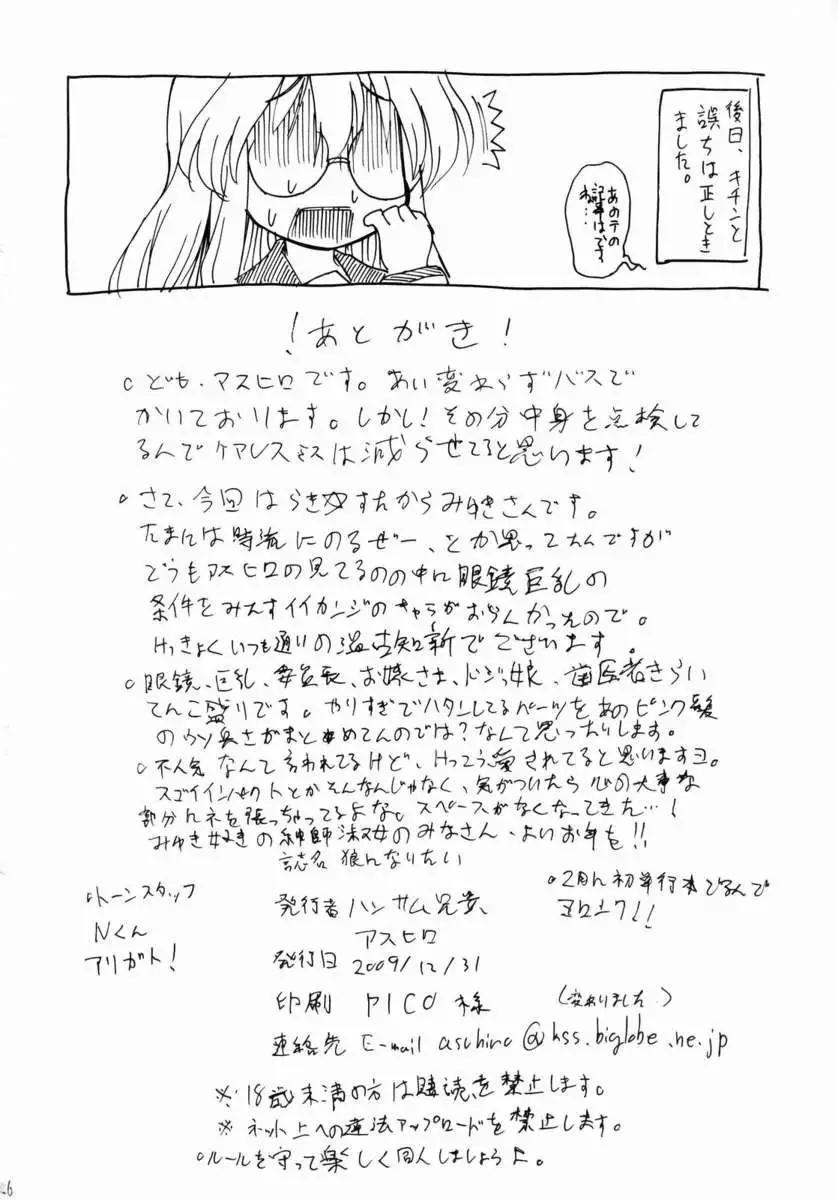 後日、キチンと
誤ちは正しとき
ました。
あのテの
記事はです
ね…
！あとがき！
○ども、アスヒロです。あい変わらずバスで
かいております。しかし！その分中身を点検して
るんでケアレスミスは減らせてると思います！
○さて、今回はらき☆すたからみゆきさんです。
たまには時流にのるぜー、とか思ってたんですが
どうもアスヒロの見てるのの中に眼鏡巨乳の
条件をみたすイイカンジのキャラがおらんかったので。
けっきょくいつも通りの温古知新でございます。
○眼鏡、巨乳、委員長、お嬢さま、ドジっ娘、歯医者きらい
てんこ盛りです。やりすぎでハタンしてるパーツをあのピンク髪
のウソ臭さがまとめてんのでは？なんて思ったりします。
○不人気なんて言われてるけど、けっこう愛されてると思いますヨ。
スゴイインパクトとかそんなんじゃなく、気がついたら心の大事な
部分に根を張っちゃってるよな。スペースがなくなってきた…！
みゆき好きの紳師淑女のみなさん、よいお年を！！
誌名 狼になりたい
○トーンスタッフ
Nくん
アリガト！
発行者 ハンサム兄弟、
アスヒロ
○2月に初単行本でるんで
ヨロシク！！
発行日 2009/12/31
印刷 PICO 様
（変ありました）
連絡先 E-mail aschiro@kss.biglobe.ne.jp
※18歳未満の方は購読を禁止します。
※ネット上への違法アップロードを禁止します。
○ルールを守って楽しく同人しましょうよ。